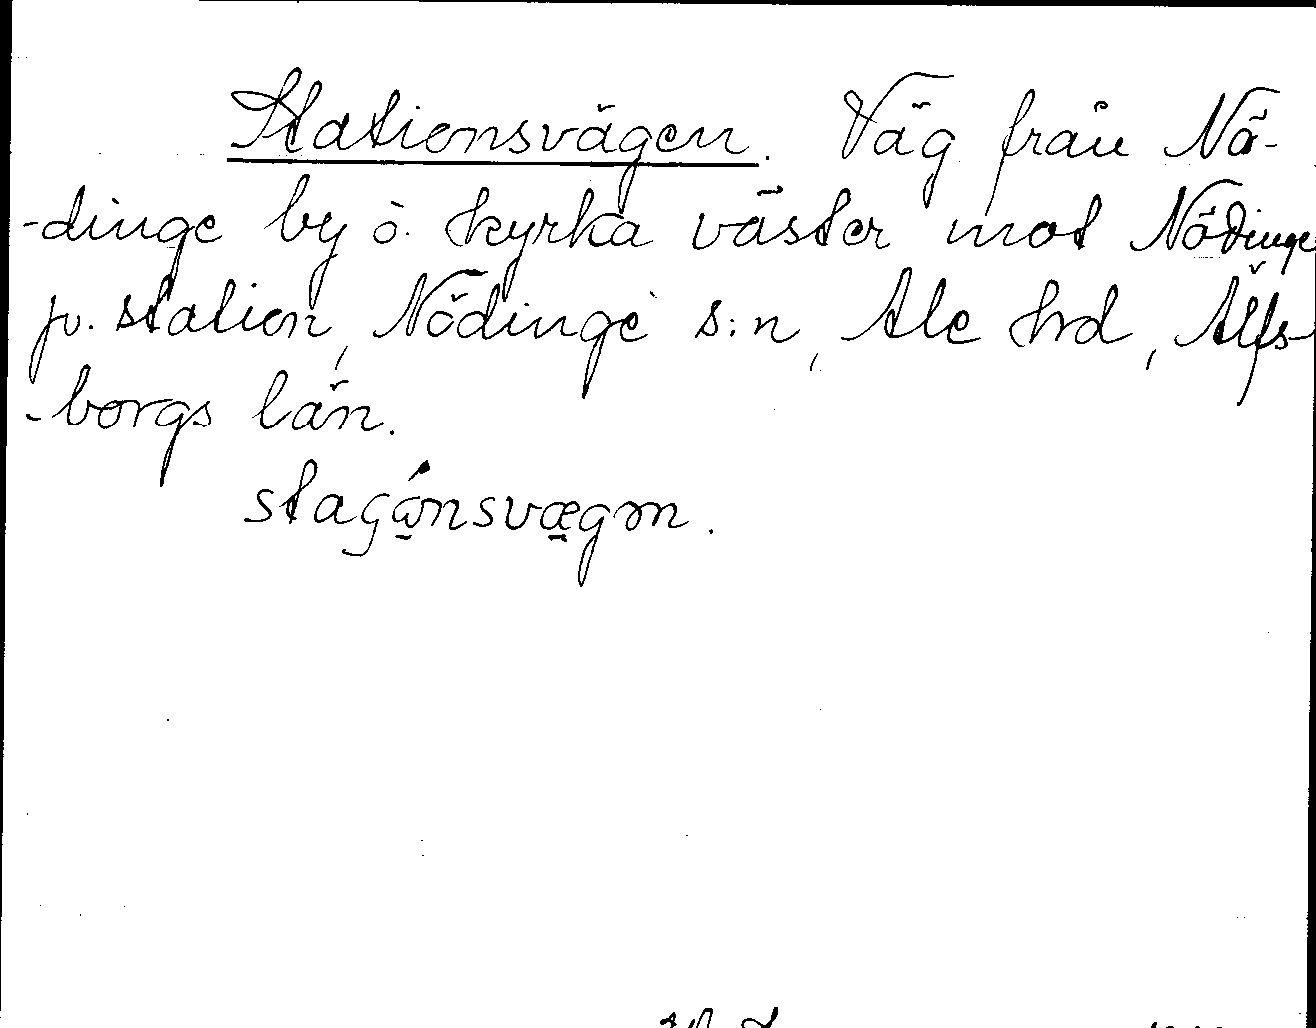 Stationsvägen. Väg från Nö-
-dinge by o. kyrka väster mot Nödinge
jv. station, Nödinge s:n, Ale hrd, Älfs-
-borgs län.